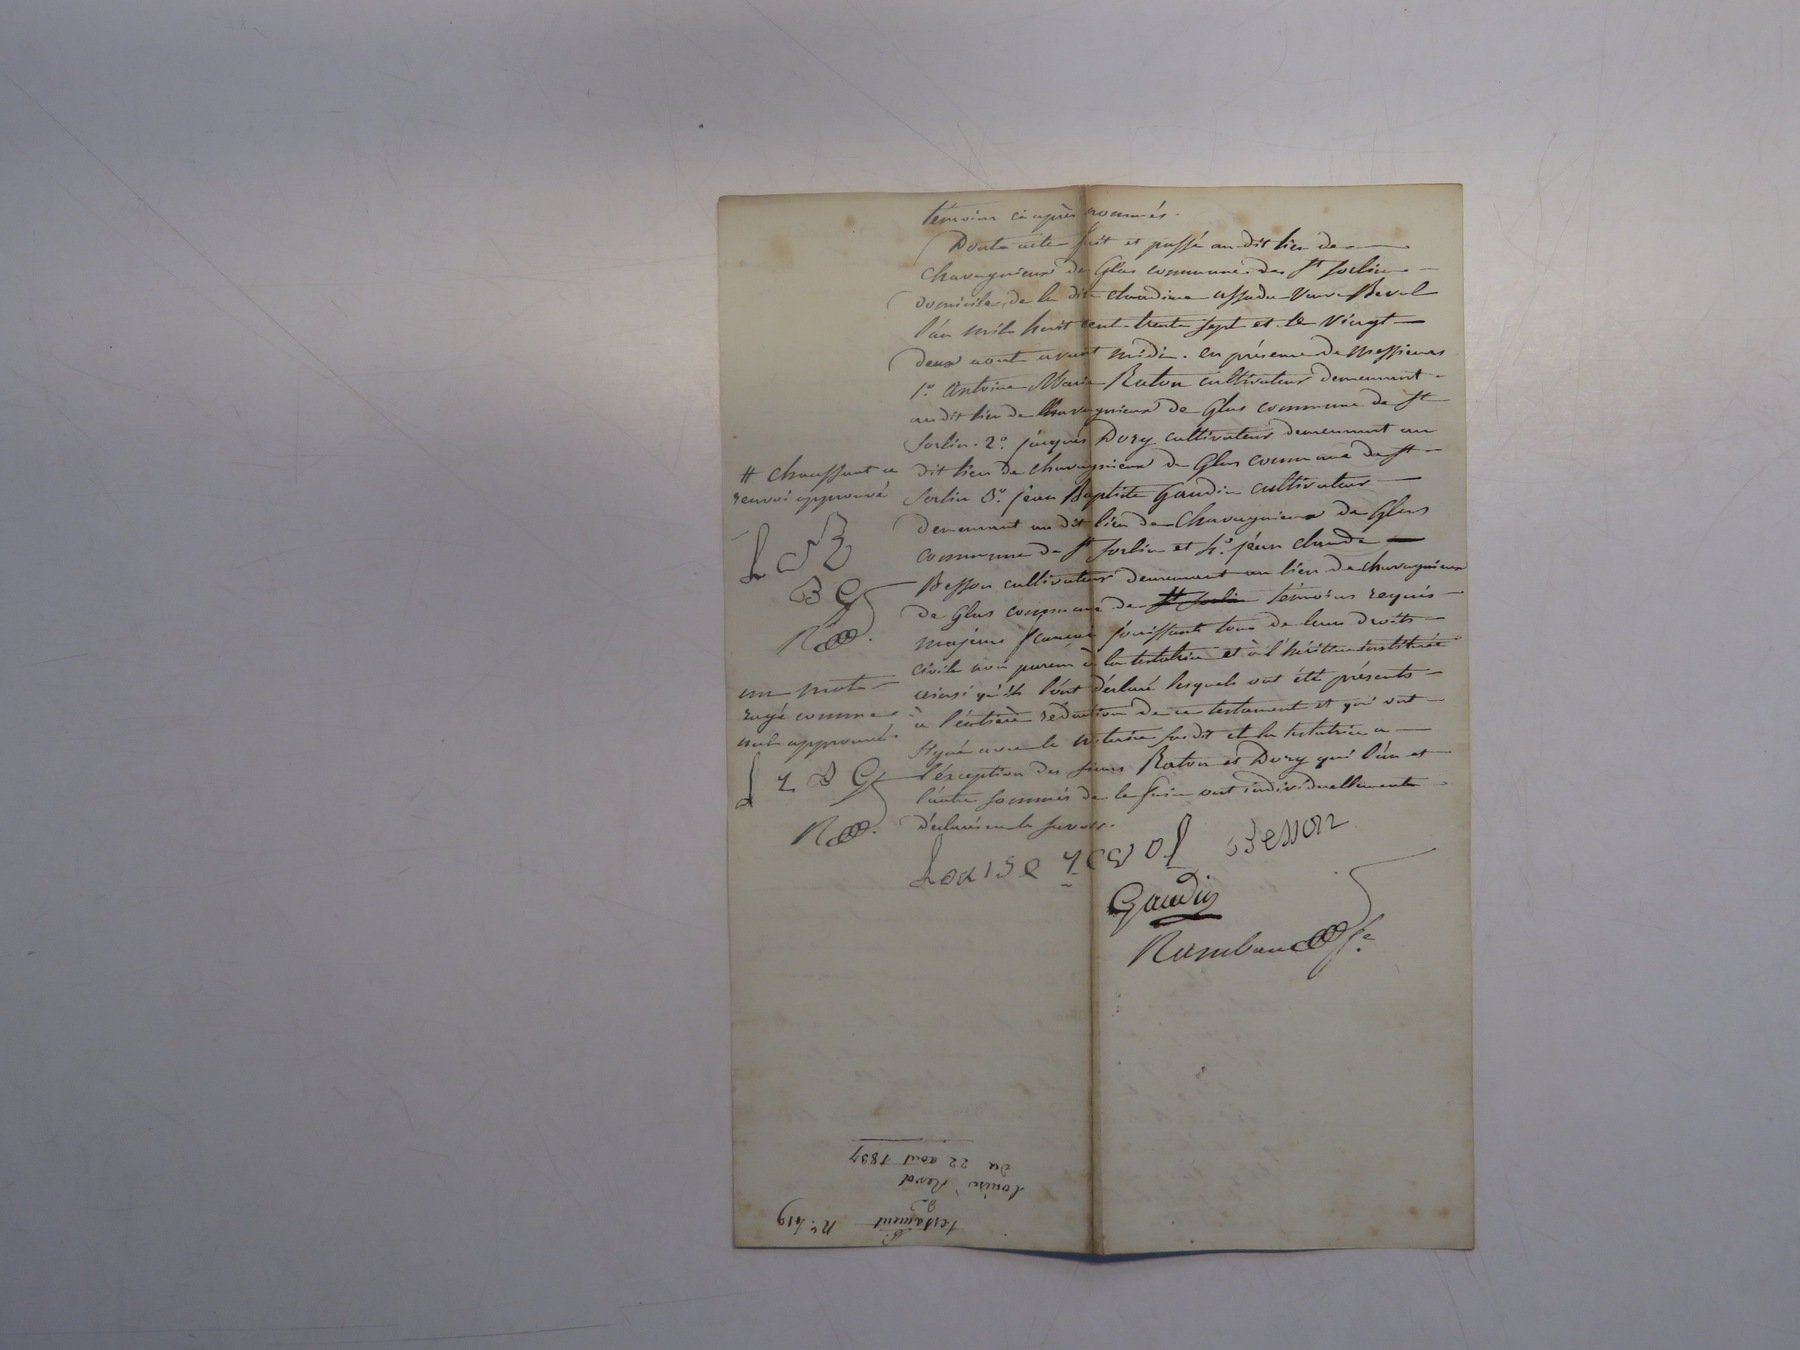 témoins ci après nommés.
Dont acte fait et passé au dit lieu de
Chavagnieux de Glas commune de St Sorlin
domicile de la dite Claudine veuve Reval
l'an mil huit cent trente sept et le vingt
deux aout avant midi. en présence de Messieurs
1.o Antoine Marie Raton cultivateur demeurant
au dit lieu de Chavagnieux de Glas commune de St
Sorlin. 2.o jacques Dory cultivateur demeurant au
dit lieu de Chavagnieux de Glas commune de St
Sorlin 3.o jean Baptiste Gaudin cultivateur
demeurant au dit lieu de Chavagnieux de Glas
commune de St Sorlin et 4.o jean claude
Besson cultivateur demeurant au lieu de chavagnieux
de Glas commune de St Sorlin témoins requis
majeurs francais jouissants tous de leurs droits
civils non parens à la testatrice et à l'héritière instituée
ainsi qu'ils l'ont déclaré lesquels ont été présents
à l'entière rédaction de ce testament et qui ont
signé avec le notaire susdit et la testatrice a
l'exception des sieurs Raton et Dory qui l'un et
l'autre sommés de le faire ont individuellement
déclaré ne le savoir.
# chauffant ce
renvoi approuvé
L R
B G
R
un mot
rayé comme
nul approuvé
L R B G
R
Louise Reval Besson
Gaudin
Rambaud
testament
de
Louise Reval
du 22 aout 1837
No. 419